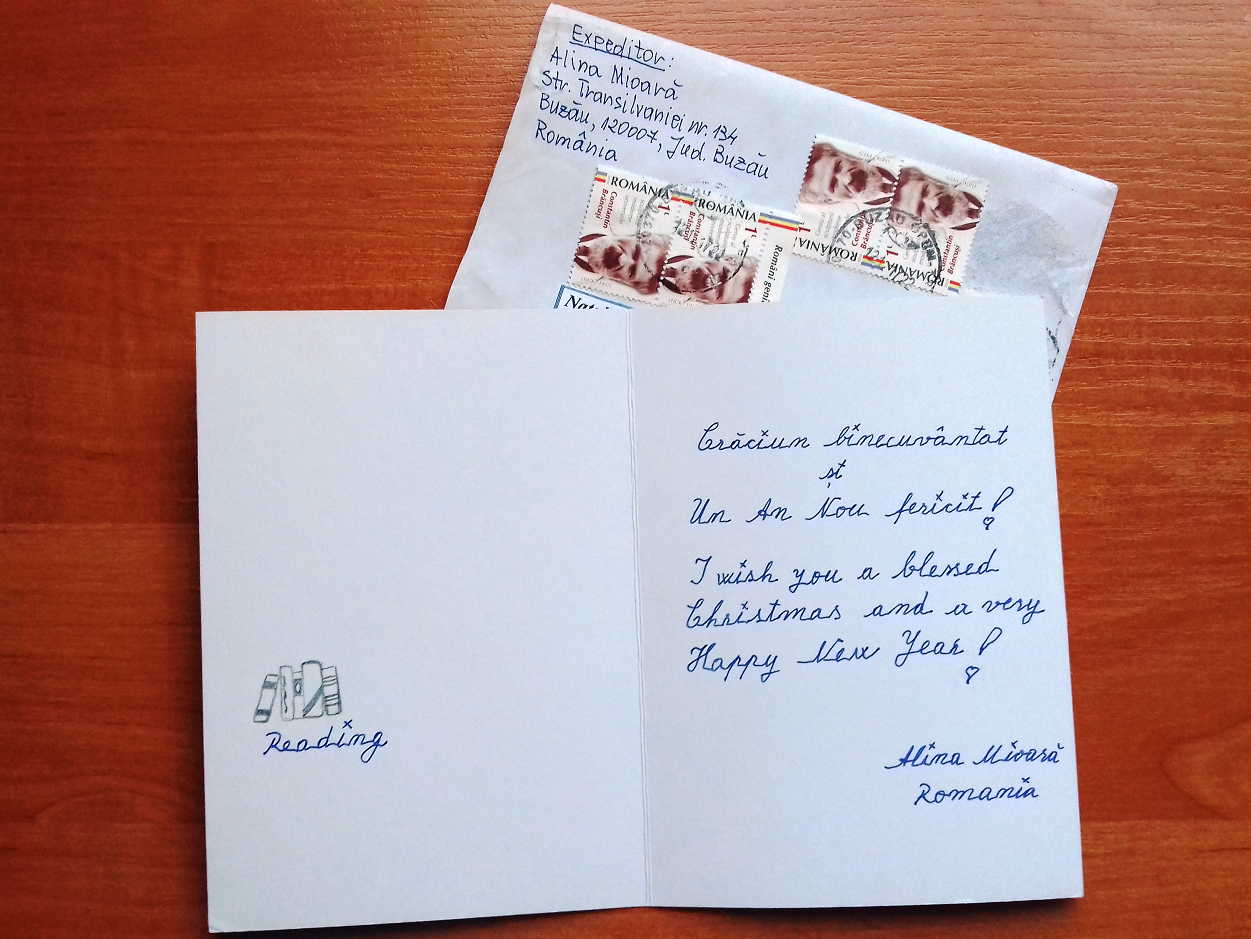 Expeditor:
Alina Mioară
Str. Transilvaniei nr. 134
Buzău, 120007, Jud. Buzău
România
ROMÂNIA
1L
Constantin
Brâncuși
ROMÂNIA
1L
Constantin
Brâncuși
Români geni
ROMÂNIA
1L
Constantin
Brâncuși
ROMÂNIA
1L
Constantin
Brâncuși
Crăciun binecuvântat
și
Un An Nou fericit!
I wish you a blessed
Christmas and a very
Happy New Year!
Reading
Alina Mioară
Romania